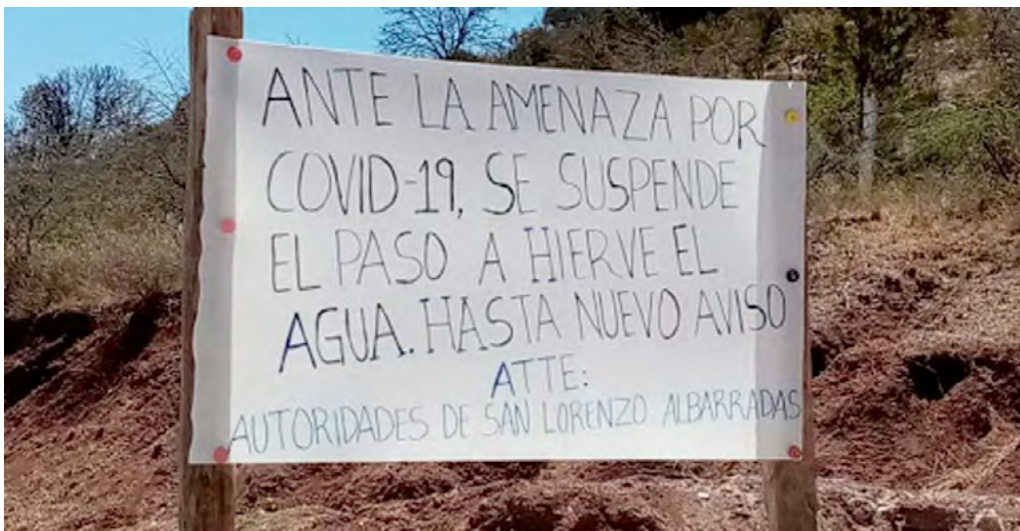 ANTE LA AMENAZA POR
COVID-19, SE SUSPENDE
EL PASO A HIERVE EL
AGUA. HASTA NUEVO AVISO
ATTE:
AUTORIDADES DE SAN LORENZO ALBARRADAS